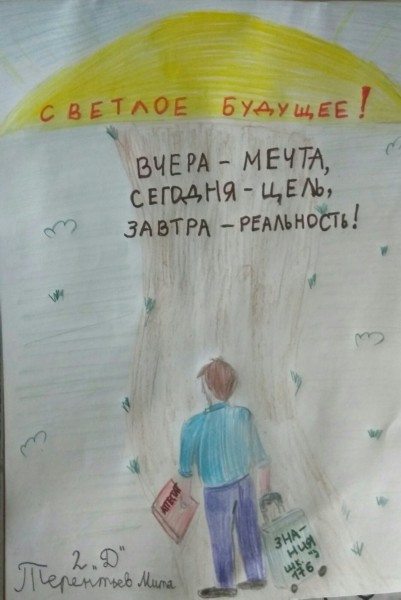 СВЕТЛОЕ БУДУЩЕЕ!
ВЧЕРА – МЕЧТА,
СЕГОДНЯ – ЦЕЛЬ,
ЗАВТРА – РЕАЛЬНОСТЬ!
АТТЕСТАТ
ЗНА-
НИЯ
шк.
176
2 „Д"
Терентьев Миша